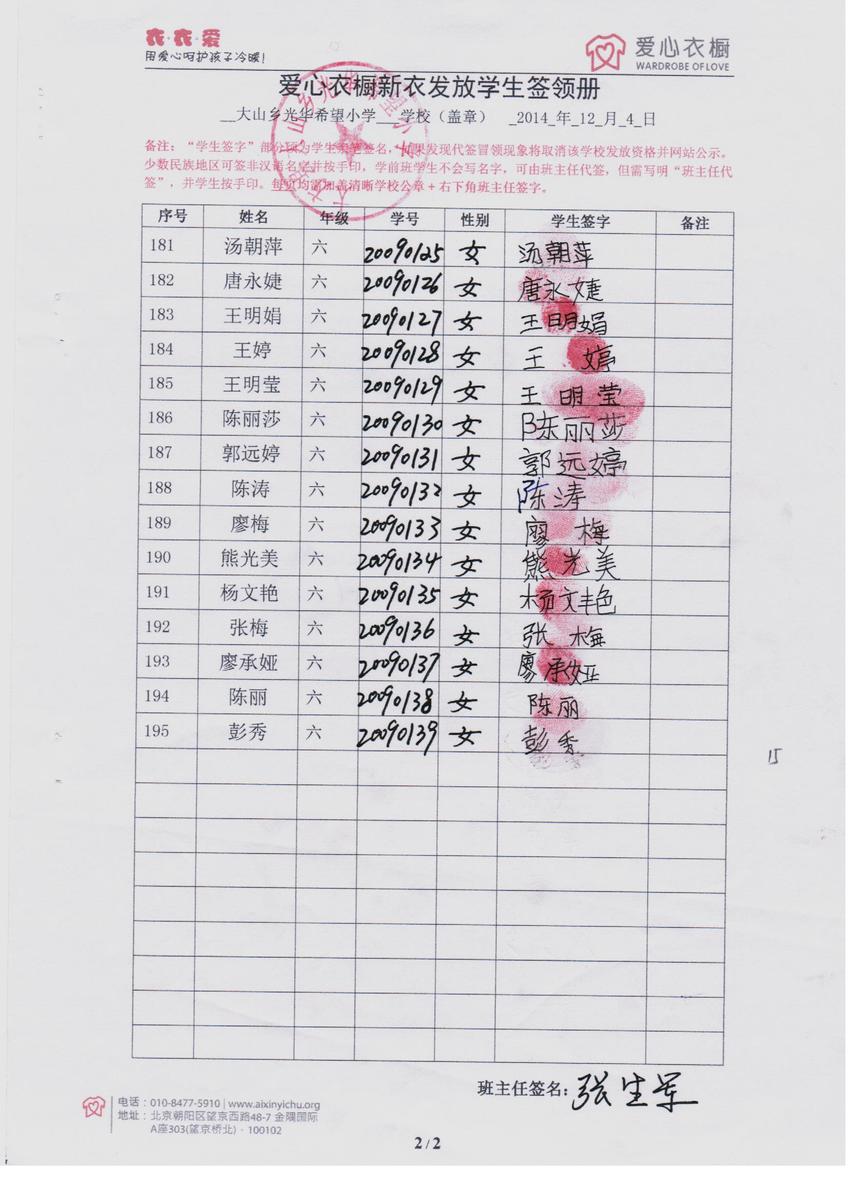 衣·衣·爱
用爱心呵护孩子冷暖!
爱心衣橱
WARDROBE OF LOVE
爱心衣橱新衣发放学生签领册
__大山乡光华希望小学___学校（盖章） _2014_年_12_月_4_日
备注：“学生签字”部分须为学生亲笔签名，如果发现代签冒领现象将取消该学校发放资格并网站公示。
少数民族地区可签非汉语名字并按手印，学前班学生不会写名字，可由班主任代签，但需写明“班主任代
签”，并学生按手印。每页均需加盖清晰学校公章+右下角班主任签字。
序号 姓名 年级 学号 性别 学生签字 备注
181 汤朝萍 六 20090125 女 汤朝萍
182 唐永婕 六 20090126 女 唐永婕
183 王明娟 六 20090127 女 王明娟
184 王婷 六 20090128 女 王婷
185 王明莹 六 20090129 女 王明莹
186 陈丽莎 六 20090130 女 陈丽莎
187 郭远婷 六 20090131 女 郭远婷
188 陈涛 六 20090132 女 陈涛
189 廖梅 六 20090133 女 廖梅
190 熊光美 六 20090134 女 熊光美
191 杨文艳 六 20090135 女 杨文艳
192 张梅 六 20090136 女 张梅
193 廖承娅 六 20090137 女 廖承娅
194 陈丽 六 20090138 女 陈丽
195 彭秀 六 20090139 女 彭秀
15
班主任签名：张生军
电话：010-8477-5910 | www.aixinyichu.org
地址：北京朝阳区望京西路48-7 金隅国际
A座303(望京桥北)·100102
2 / 2